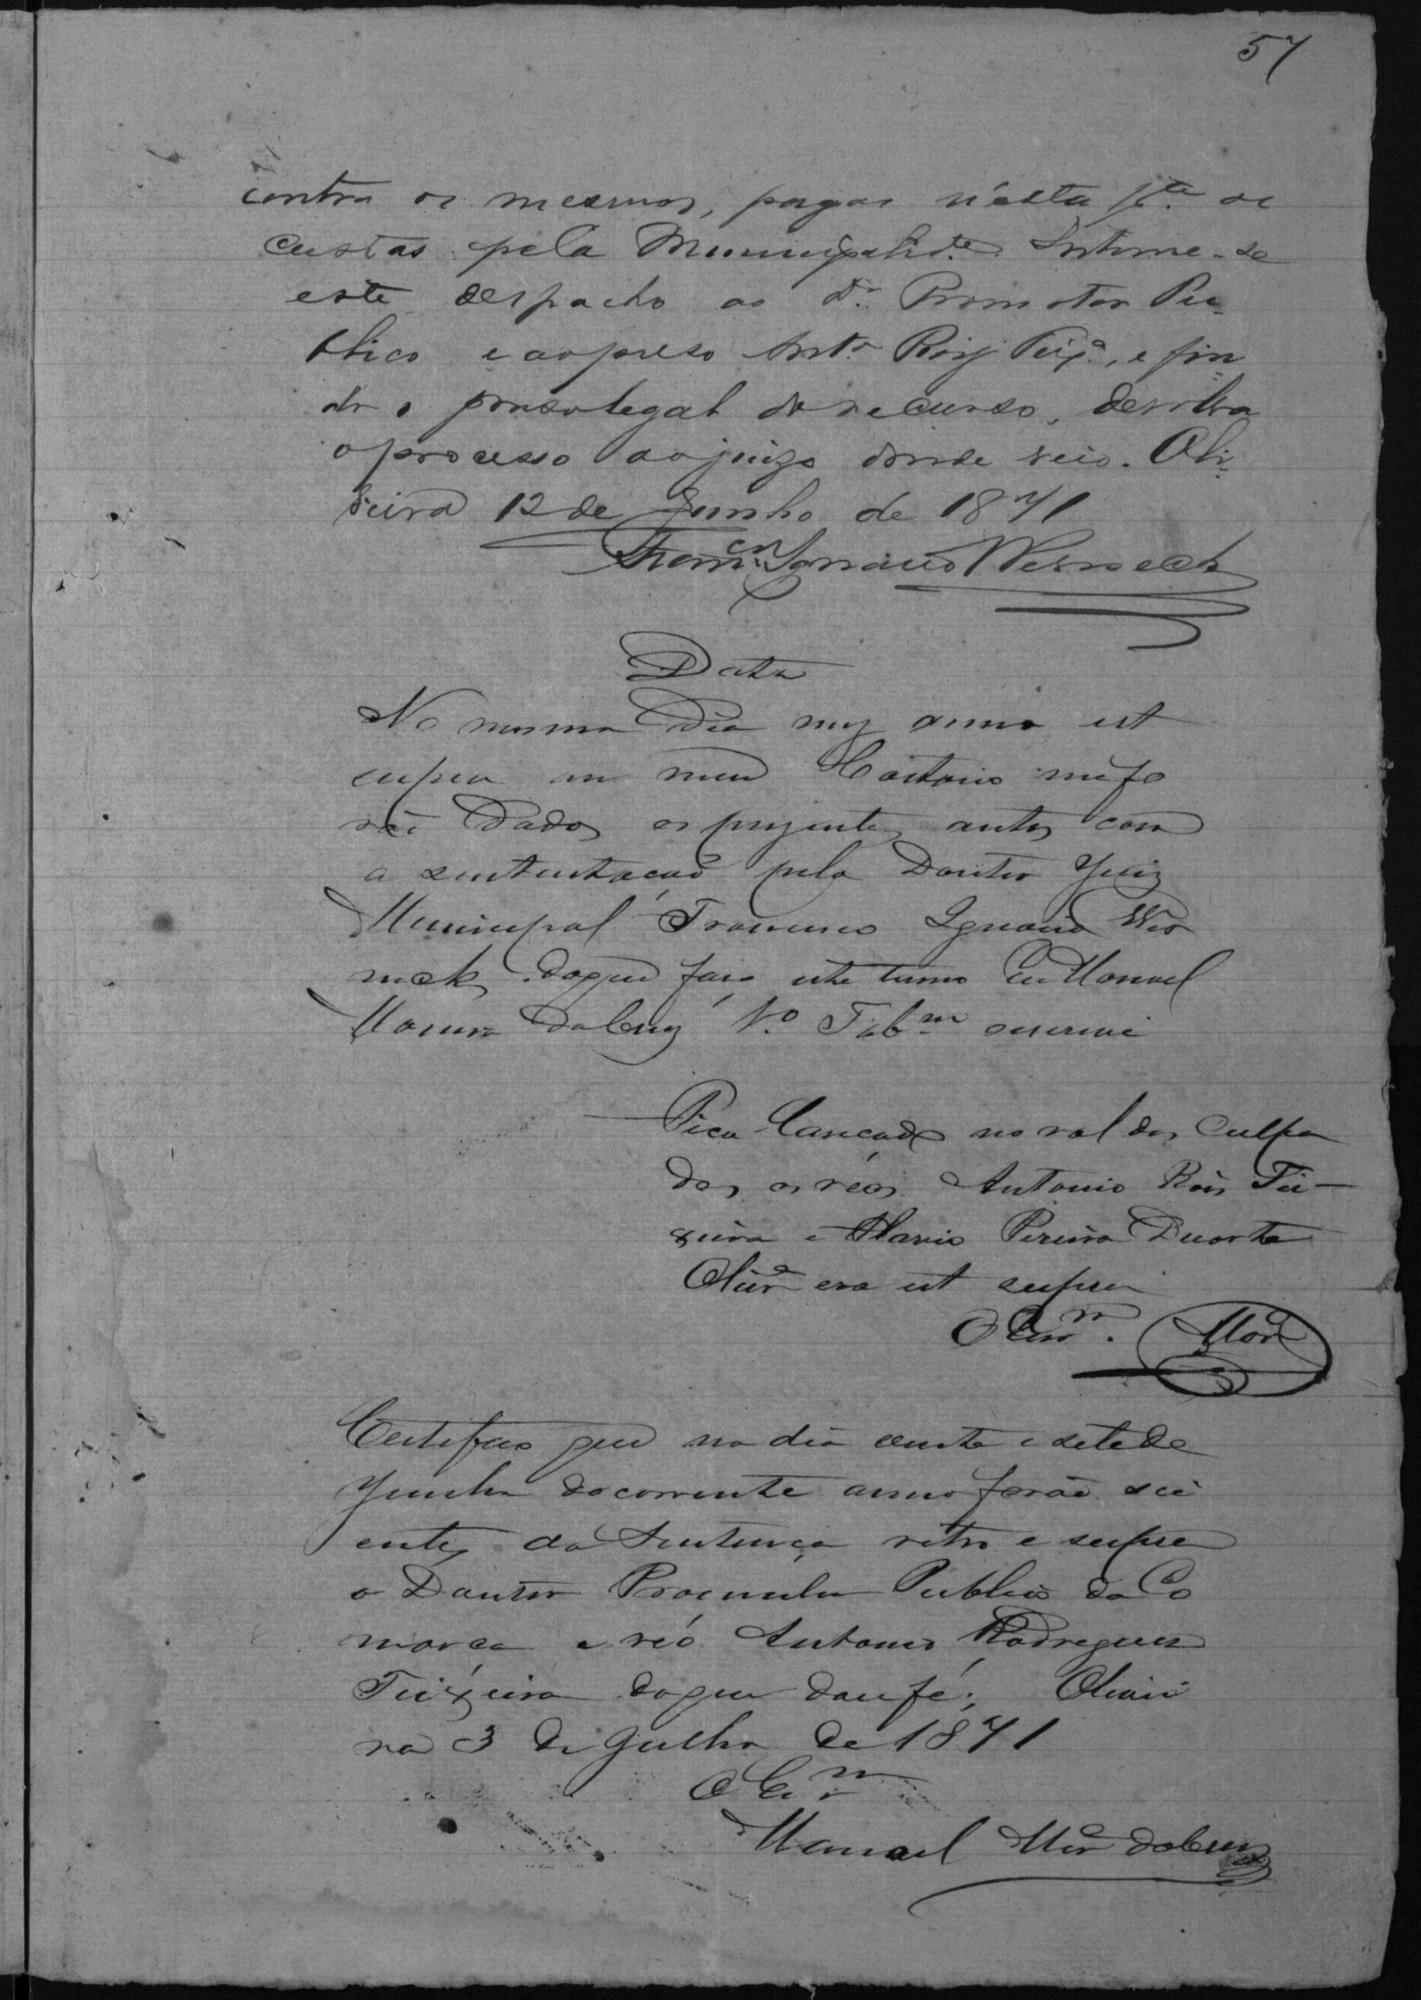 57
contra os mesmos, pagas n'esta p.te as
custas pela Municipalid.e. Intime-se
este despacho ao D.r Promotor Pu-
blico e ao preso Ant.o Roiz Teix.a, e fin-
do o praso legal do recurso, devolva
o processo ao juizo donde veio. Oli-
veira 12 de Junho de 1871
Fran.co Ignacio Werneck
Data
No mesmo dia mez anno ut
supra em meu Cartorio me fo
rão dados os prezentes autos com
a sustentacaõ pelo Doutor Juiz
Municipal Francisco Ignacio Wer
neck, do que faço este termo Eu Manoel
Moreira da Cruz 1.o Tab.m escrevi
Fica lancado no rol dos culpa
dos os réos Antonio Róis Tei-
xeira e Flavio Pereira Duarte
Olivr.a era ut supra
O Escr.m Mor.a
Certifico que no dia vinte e sete de
Junho do corrente anno forão sci
entes da Sentença retro e supra
o Doutor Promulor Publico da Co
marca e reó Antonio Rodrigues
Teixeira do que dou fé; Olivei
ra 3 de Julho de 1871
O Escr.m
Manoel Mor.a da Cruz